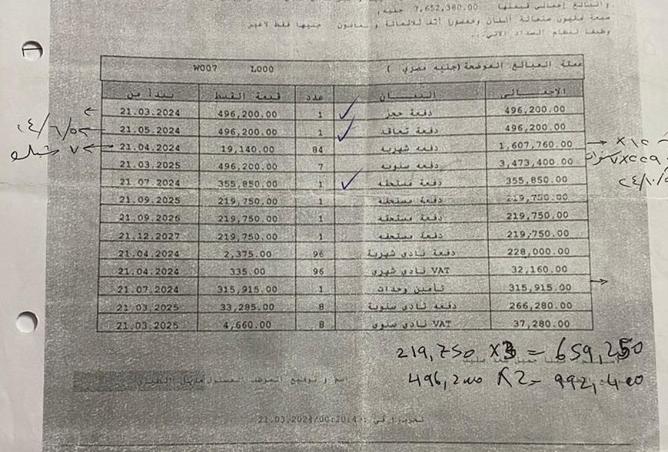 والبالغ إجمالي قيمتها 7,652,380.00 جنيه,
جنيها فقط لاغير
وطبقا لنظام السداد الاتي:
عملة المبالغ الموضحة (جنيه مصري ) L000 W007
الاجمالى البيان عدد قيمة القسط يبدأ من
496,200.00 دفعة حجز 1 496,200.00 21.03.2024
496,200.00 دفعة تعاقد 1 496,200.00 21.05.2024
1,607,760.00 دفعة شهرية 84 19,140.00 21.04.2024
3,473,400.00 دفعة سنوية 7 496,200.00 21.03.2025
355,850.00 دفعة مستحقة 1 355,850.00 21.07.2024
219,750.00 دفعة مستحقة 1 219,750.00 21.09.2025
219,750.00 دفعة مستحقة 1 219,750.00 21.09.2026
219,750.00 دفعة مستحقة 1 219,750.00 21.12.2027
228,000.00 دفعة نادى شهرية 96 2,375.00 21.04.2024
32,160.00 VAT نادى شهرى 96 335.00 21.04.2024
315,915.00 تأمين وحدات 1 315,915.00 21.07.2024
266,280.00 دفعة نادى سنوية 8 33,285.00 21.03.2025
37,280.00 VAT نادى سنوى 8 4,660.00 21.03.2025
219,750 X3 = 659,250
496,200 X2 = 992,400
اسم و توقيع الموظف المسئول
تحريرا في :